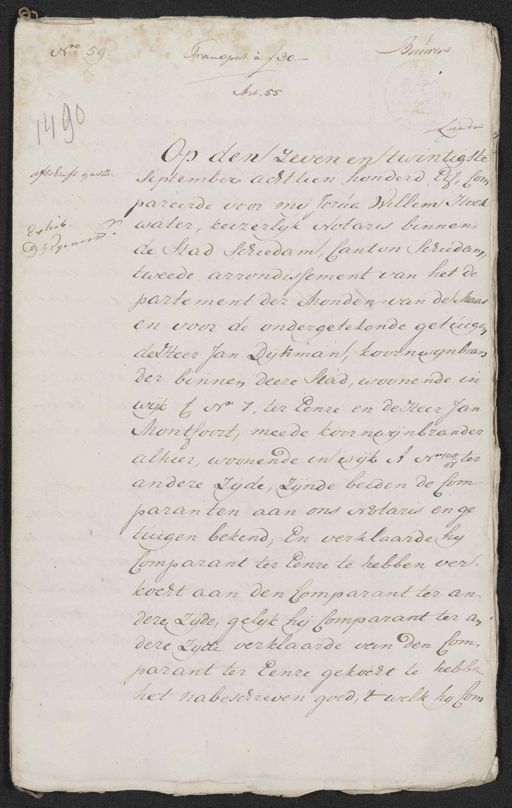 Nro 59.
Transport à f 30
Art. 55
1490
afschrift gedaan
Op den Zeven en twintigste
September achttien honderd Elf, Com
pareerde voor my Josua Willem Hoek
water, keizerlyk Notaris binnen
de Stad Schiedam, Canton Schiedam,
tweede arrondissement van het de
partement der Monden van de Maas
en voor de ondergetekende getuigen,
de Heer Jan Dykman, koornwynbran
der binnen deeze Stad, woonende in
wyk C No 7, ter Eenre en de Heer Jan
Montfoort, meede koornwynbrander
alhier, woonende in wyk A No ter
andere Zyde, Zynde beiden de Com
paranten aan ons Notaris en ge
tuigen bekend; En verklaarde hy
Comparant ter Eenre te hebben ver
kocht aan den Comparant ter an
dere Zyde, gelyk hy Comparant ter an
dere Zyde verklaarde van den Com
parant ter Eenre gekocht te hebben
het nabeschreven goed, 't welk hy Com